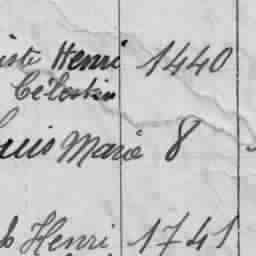 iste Henri 1440
Célestin
ouis Marie 8
h Henri 1741